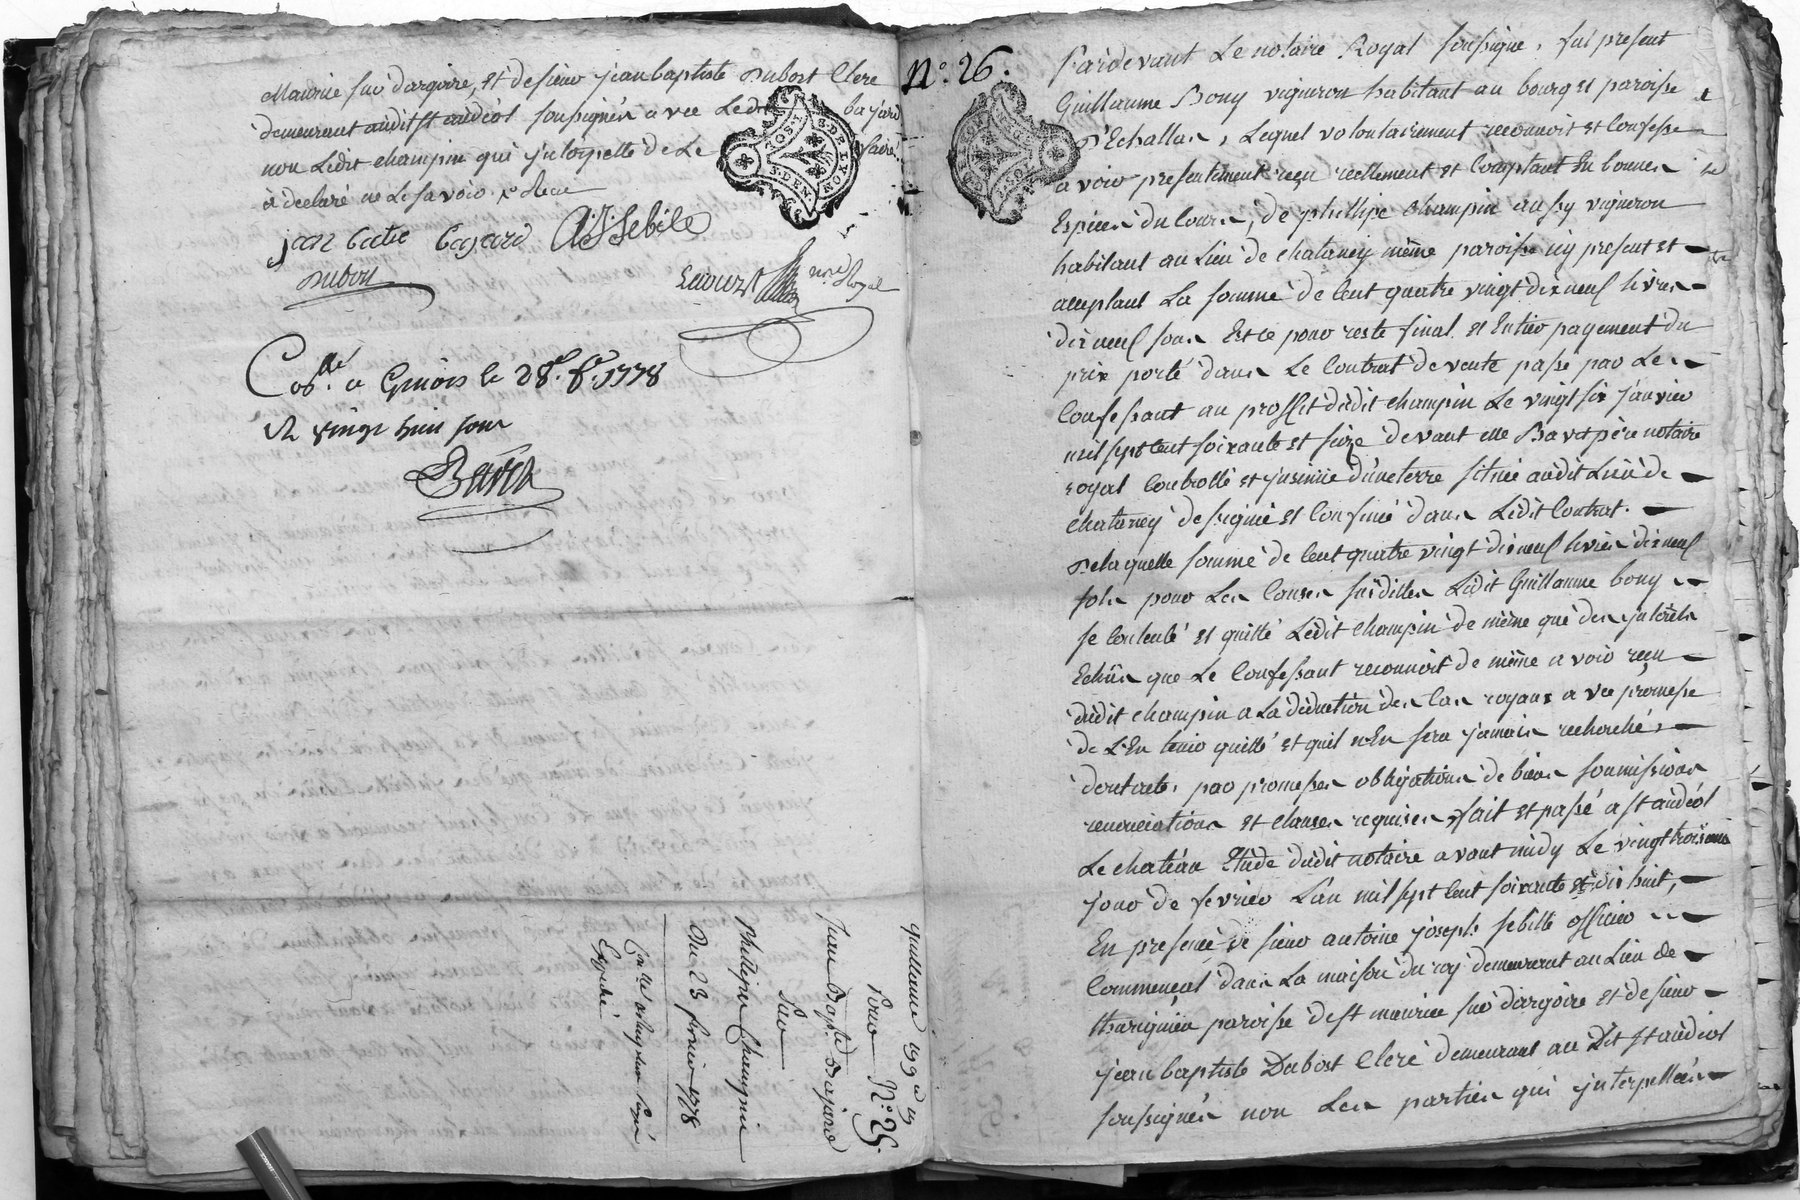 Maurice sur dargoire, et de sieur jean baptiste Dubost Clerc
demeurant audit st andéol soussignés avec Ledit bajard
non Ledit champin qui jnterpellé de Le faire
a declaré ne Le savoir
jan batie bajard A:J:Sebile
Dubost
nre Royal
GEN. DE LYON
2. SOLS
Coslé. a Givors le 28. f. 1778
vingt huit sous
guittance 199 # 19
Pour N°. 25.
Jean Bapte. Bajard
Sur
Phillipe Champin
Du 23 fevrier 1778
Expedié
N°. 26.
Pardevant Le notaire Royal soussigné, fut present
Guillaume Bony vigneron habitant au bourg et paroisse
D'Echallas, Lequel volontairement reconnoit et Confesse
avoir presentement reçu reellement et Comptant En bonnes
Espices du Cours, de phillipe Champin aussy vigneron
habitant au Lieu de chataney même paroisse icy present et
acceptant La somme de Cent quatre vingt dix neuf livres
dix neuf sous Est ce pour reste final et Entier payement du
prix porté dans Le Contrat de vente passé par Le
Confessant au proffit dudit champin Le vingt six janvier
mil sept Cent soixante et seize devant Me notaire
royal Controllé et jnsinué d'une terre situëe audit Lieu de
chataney designé et Confiné dans Ledit Contrat.
De laquelle somme de Cent quatre vingt dix neuf livres dix neuf
sols pour Les Causes susdittes Ledit Guillaume bony
se Contente et quitte Ledit champin de même que des jnterets
Echûs que Le Confessant reconnoit de même avoir reçu
dudit champin a La déduction des Cas royaux avec promesse
de L'En tenir quitte et quil n'En sera jamais recherché,
dont acte, par promesses obligations de biens soumissions
renonciations et clauses requises, fait et passé a st andéol
Le chatëau Etude dudit notaire avant midy Le vingt troisieme
jour de fevrier L'an mil sept Cent soixante et dix huit,
En presence de sieur antoine joseph sebille officier
Commençal dans La maison du roy demeurant au Lieu de
paroisse de st maurice sur dargoire et de sieur
jean baptiste Dubost Clerc demeurant au Dit st andéol
soussignés non Les parties qui jnterpellées